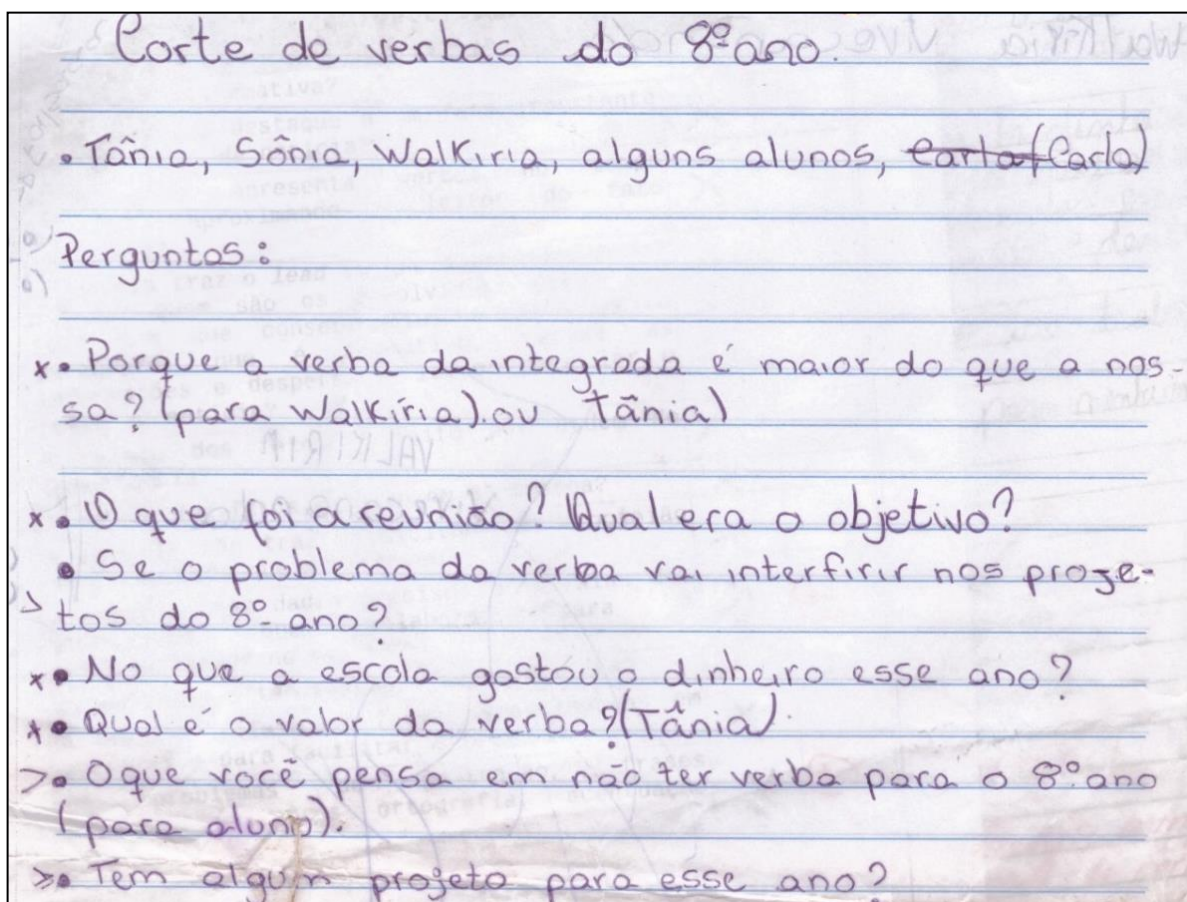 Corte de verbas do 8º ano.
• Tânia, Sônia, Walkiria, alguns alunos, Carta (Carla)
Perguntas:
x• Porque a verba da integrada é maior do que a nos-
sa? (para Walkíria). ou Tânia)
x• O que foi a reunião? Qual era o objetivo?
• Se o problema da verba vai interfirir nos proje-
> tos do 8º ano?
x• No que a escola gastou o dinheiro esse ano?
x• Qual é o valor da verba? (Tânia).
>• O que você pensa em não ter verba para o 8º ano
(para aluno).
>• Tem algum projeto para esse ano?